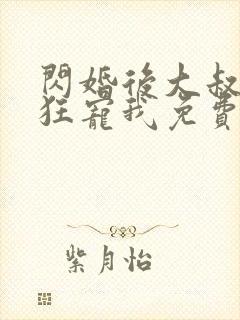 閃婚後大叔
狂寵我免費
紫月怡